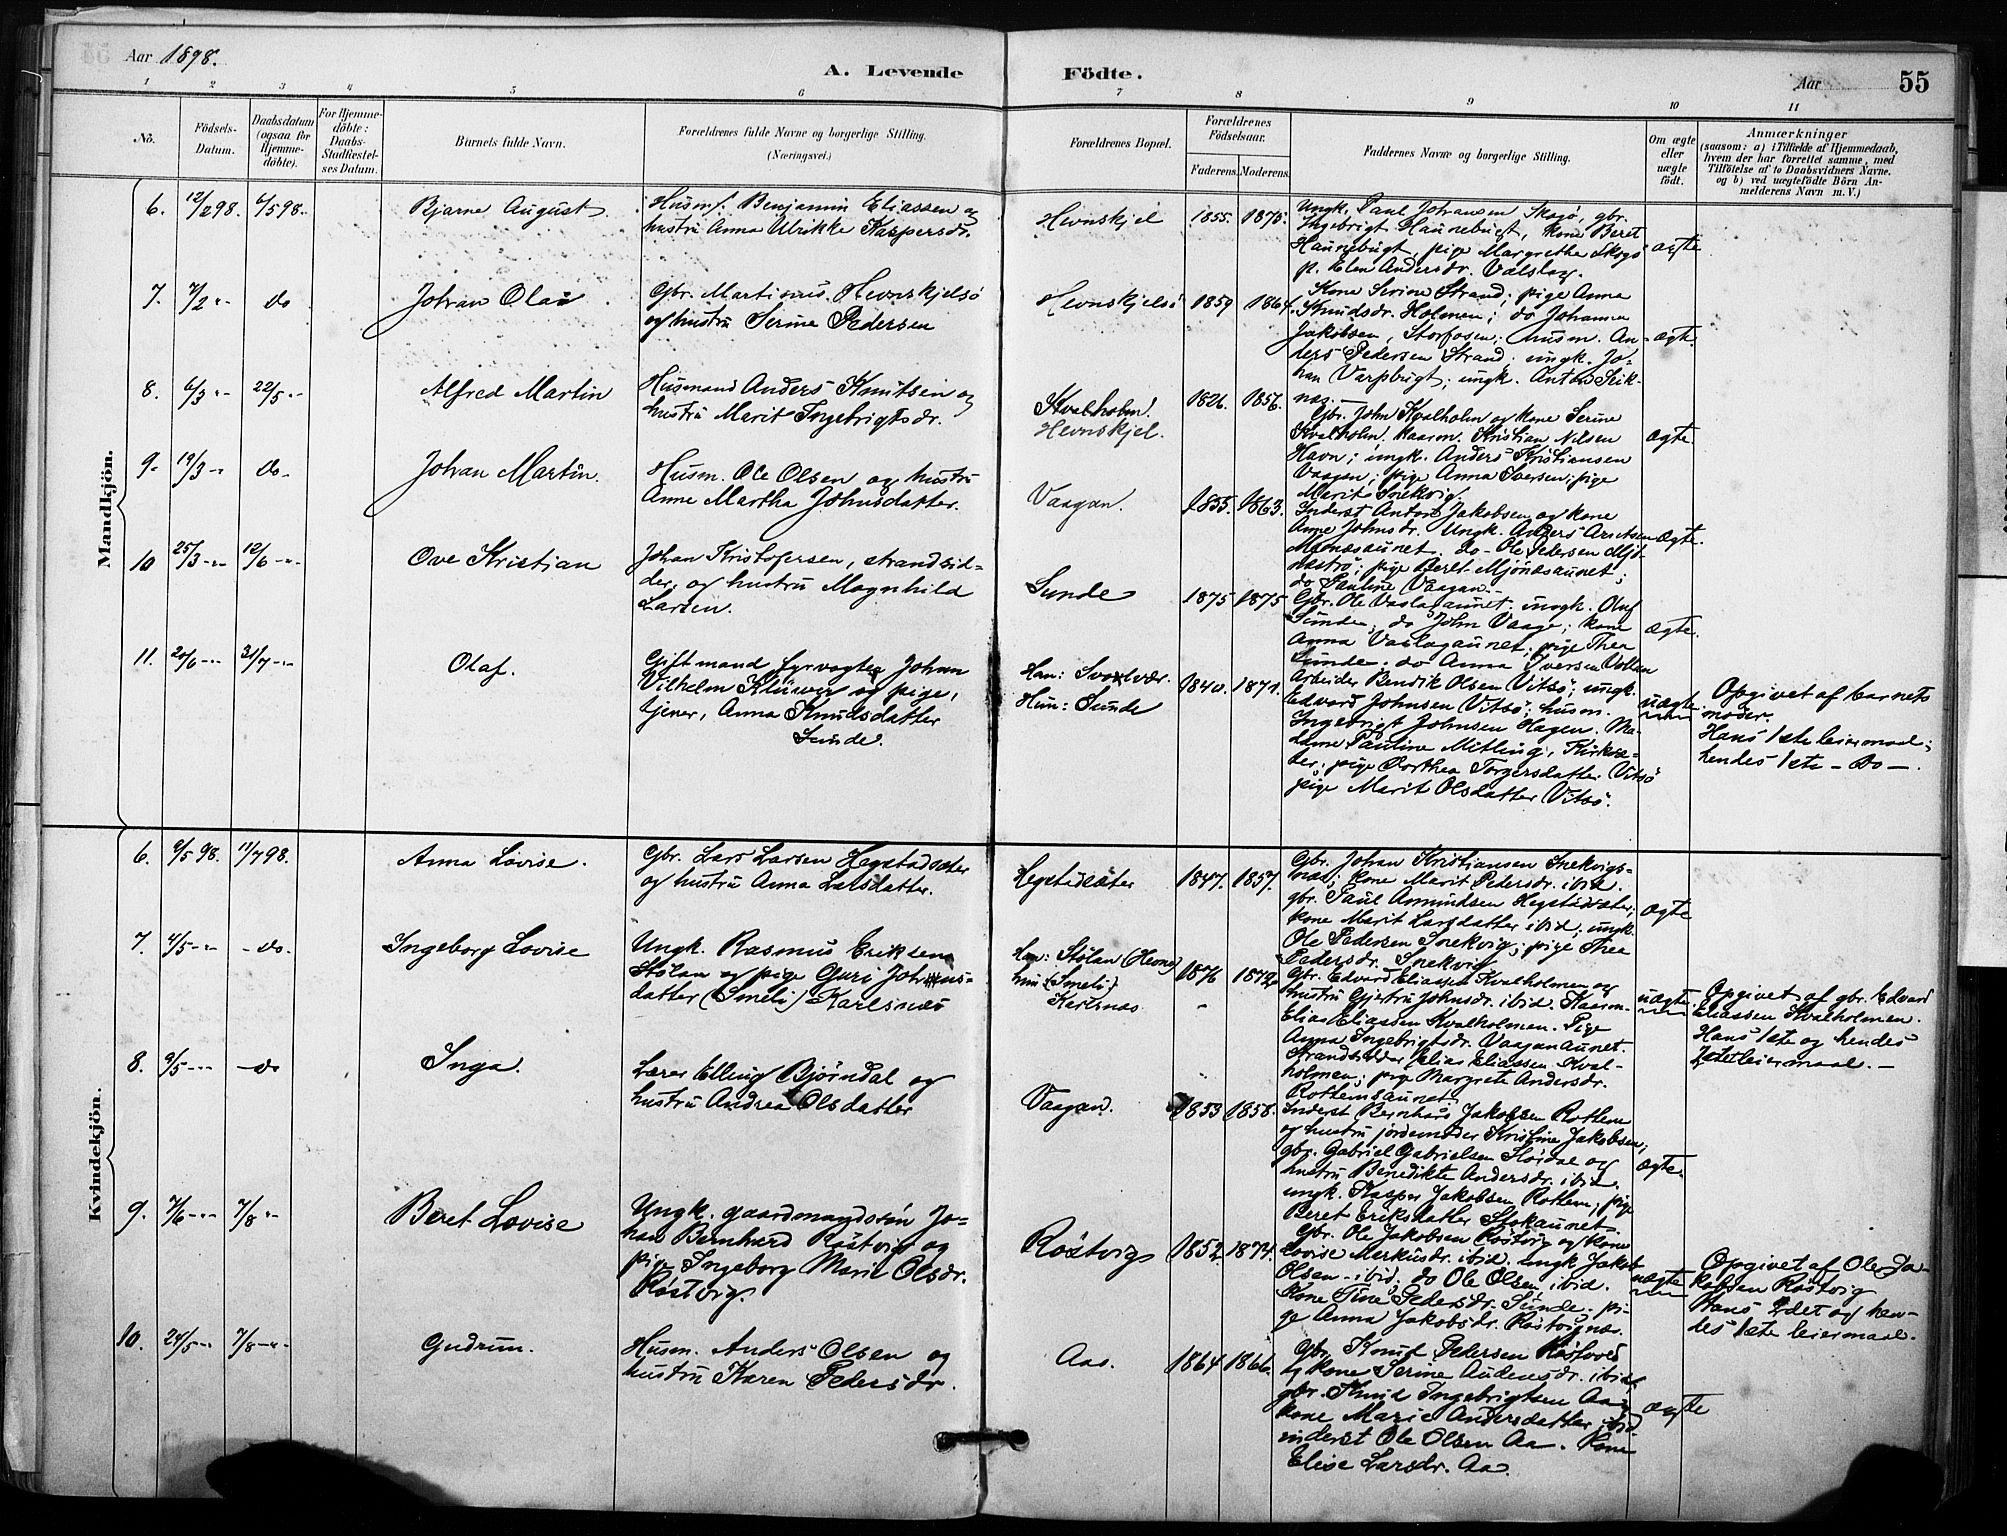 Aar 1898.
A. Levende Födte.
Aar
55
1 2 3 4 5 6 7 8 9 10 11
No.
Födsels-
Datum.
Daabsdatum
(ogsaa for
Hjemme-
döbte).
For Hjemme-
döbte:
Daabs-
Stadfæstel-
ses Datum.
Barnets fulde Navn.
Forældrenes fulde Navne og borgerlige Stilling.
(Næringsvei.)
Forældrenes Bopæl.
Forældrenes
Födselsaar.
Faderens. Moderens.
Faddernes Navne og borgerlige Stilling.
Om ægte
eller
uægte
födt.
Anmærkninger
(saasom: a) i Tilfælde af Hjemmedaab,
hvem der har forrettet samme, med
Tilföielse af to Daabsvidners Navne.
og b) ved uægtefödte Börn An-
melderens Navn m. V.)
Mandkjön.
6. 12/2 98. 6/5 98. Bjarne August.
Husm. Benjamin Eliassen og
hustru Anna Ulrikke Kaspersdr.
Hevnskjel 1855. 1875.
Ungk. Paul Johansen Skogø, gbr.
Ingebrigt Haunebugt, kone Beret
Haunebugt, pige Margrethe Skogø
p. Elen Andersdr. Valslag.
ægte
7. 7/2 "- do Johan Olai
Gbr. Martinus Hevnskjelsö
og hustru Serine Pedersen
Hevnskjelsö 1859 1864.
Kone Serine Strand; pige Anna
Knudsdr. Holmen; do Johanna
Jakobsen, Storfosen; husm. An-
ders Pedersen Strand; ungk. Jo-
han Varpbugt; ungk. Anton Snik-
næs.
ægte.
8. 6/3 "- 22/5 "- Alfred Martin
Husmand Anders Knutsen og
hustru Marit Ingebrigtsdr.
Kvalholm!
Hevnskjel.
1826. 1856.
Gbr. John Kvalholm og kone Serine
Kvalholm. Kaarm. Kristian Nilsen
Havn; ungk. Anders Kristiansen
Vaagan; pige Anna Iversen; pige
Marit Snekvig.
ægte.
9. 19/3 "- do- Johan Martin.
Husm. Ole Olsen og hustru
Anne Martha Johnsdatter.
Vaagan. 1855. 1863.
Inderst Anton Jakobsen og kone
Anne Johnsdr. Ungk. Anders Arntsen
Mjønæsaunet. do- Ole Pedersen
pige Beret Mjönæsaunet;
do Pauline Vaagan.
ægte.
10 25/3 -"- 12/6 -"- Ove Kristian
Johan Kristofersen, strandsid-
der, og hustru Magnhild
Larsen.
Sunde 1875 1875
Gbr. Ole Vaslagaunet. ungk. Oluf
Sunde; do John Vaage; kone
Anna Vaslagaunet; pige Thea
Sunde. do Anna Iversen Vollan
ægte.
11. 20/6 -"- 31/7 -"- Olaf.
Gift mand, fyrvogter Johan
Vilhelm Klüwer og pige,
tjener, Anna Knudsdatter
Sunde.
Han: Svartvær.
Hun: Sunde
1840. 1871.
Arbeider Bendik Olsen Vitsö; ungk.
Edvard Johnsen Vitsö; husm.
Ingebrigt Johnsen Hagen. Ma-
dame Pauline Mitling, Kirksæ-
ter; pige Dorthea Torgersdatter Vitsö
pige Marit Olsdatter Vitsö.
uægte
Opgivet af barnets
moder.
Hans 1ste leiermaal;
hendes 1ste - do -.
Kvindekjön.
6. 6/5 98. 11/7 98. Anna Lovise.
Gbr. Lars Larsen Hegstadsæter
og hustru Anna Larsdatter.
Hegstadsæter 1847. 1857.
Gbr. Johan Kristiansen Snekvigs-
næs; kone Marit Pedersdr. ibid.
gbr. Paul Amundsen Hegstadsæter;
kone Marit Larsdatter ibid; ungk.
Ole Pedersen Snekvig; pige Thea
Pedersdr. Snekvig
ægte
7. 4/5 -"- -do. Ingeborg Lovise
Ungk. Rasmus Eriksen
Stølan og pige Guri Johns-
datter (Smeli) Karlsnæs
han: Stølan (Hevne)
hun (Smeli)
Karlsnæs
1876 1872
Gbr. Edvard Eliassen Kvalholmen og
hustru Gjertru Johnsdr. ibid. Kaarm.
Elias Eliassen Kvalholmen. Pige
Anna Ingebrigtsdr. Vaaganaunet.
Strandsidder Elias Eliassen Kval-
holmen; pige Margrete Andersdr.
Rottemsaunet
uægte
Opgivet af gbr. Edvard
Eliassen Kvalholmen.
Hans 1ste og hendes
2det leiermaal. -
8. 9/5 -"- -do Inga.
Lærer Elling Bjørndal og
hustru Andrea Olsdatter
Vaagan. 1853 1858.
Inderst Bernhus Jakobsen Rottem
og hustru jordemoder Kristine Jakobsen;
gbr. Gabriel Gabrielsen Stördal og
hustru Benedikte Andersdr. ibid.
ungk. Kasper Jakobsen Rottem; pige
Beret Eriksdatter Stokaunet
ægte.
9. 7/6 -"- 7/8 "- Beret Lovise
Ungk. gaardmandssøn Jo-
han Bernhard Röstvig og
pige Ingeborg Marie Olsdr.
Röstvig.
Röstvig 1852 1874.
Gbr. Ole Jakobsen Röstvig og kone
Lovise Markusdr. ibid. ungk Jakob
Olsen - ibid. do Ole Olsen ibid.
Kone Tine Pedersdr. Sunde. pi-
ge Anna Jakobsdr. Röstvignæs.
uægte
Opgivet af Ole Ja-
kobsen Röstvig
Hans 2det og hen-
des 1ste leiermaal.
10. 24/5 -"- 7/8 -"- Gudrun.
Husm. Anders Olsen og
hustru Karen Pedersdr.
Aa. 1864 1866.
Gbr. Knut Pedersen
og kone Serine Audensdr. ibid;
gbr. Knud Ingebrigtsen Aa;
kone Marie Andersdatter ibid
inderst Ole Olsen Aa. Kone
Elise Larsdr. Aa.
ægte